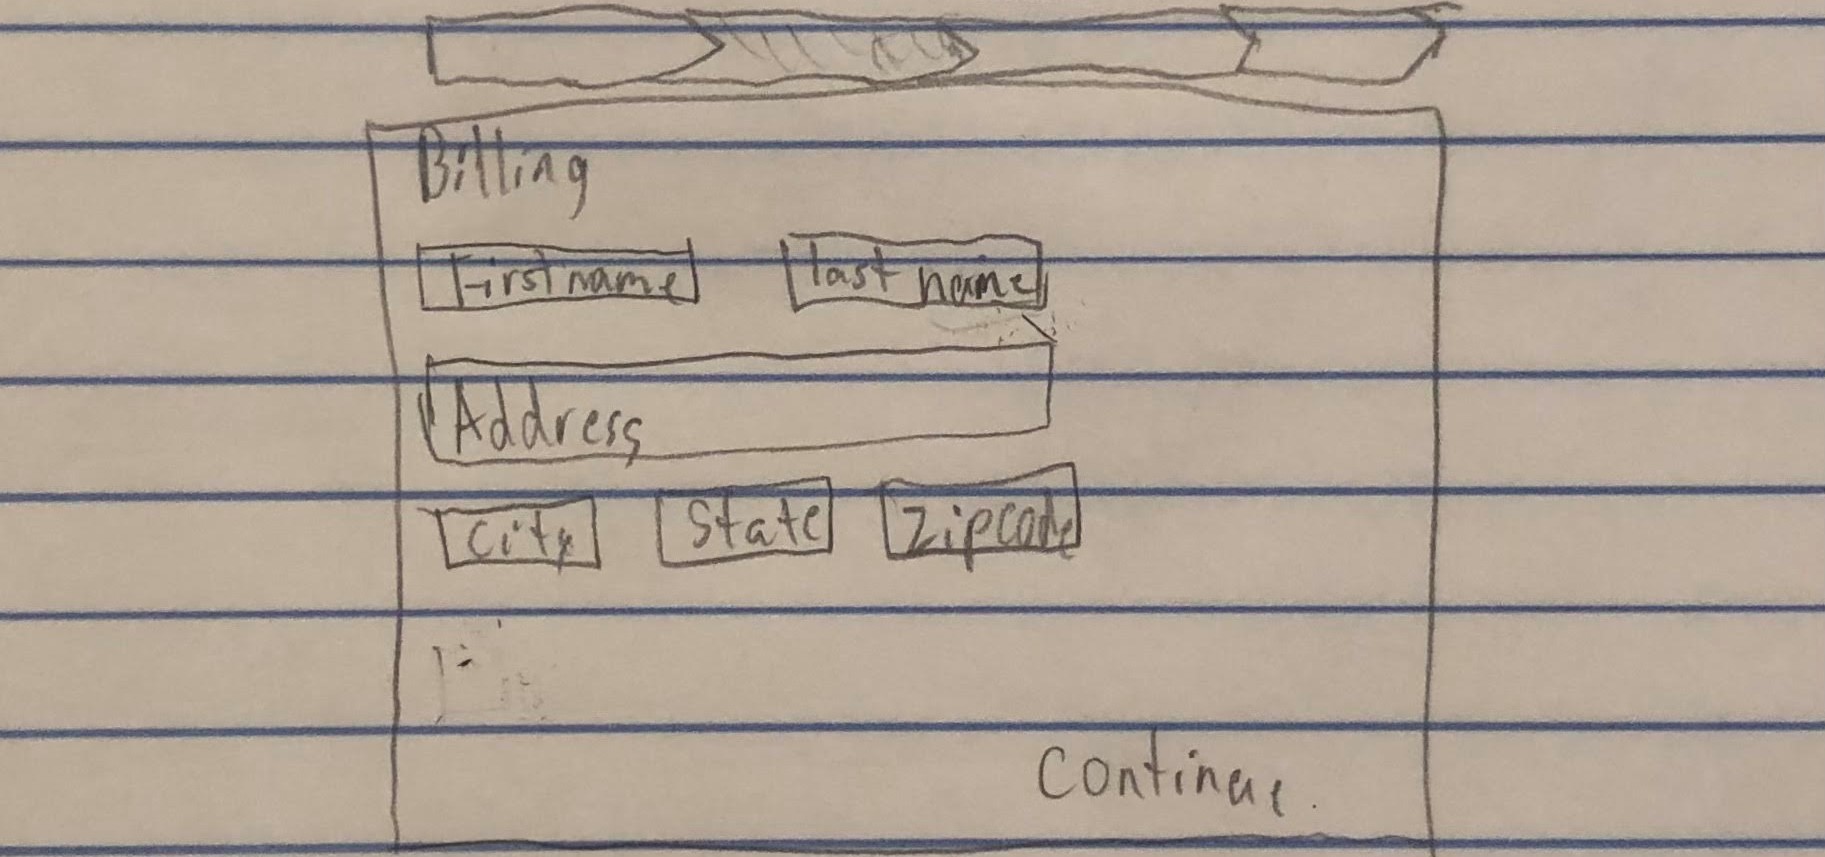 Billing
First name last name
Address
City State Zipcode
Continue.